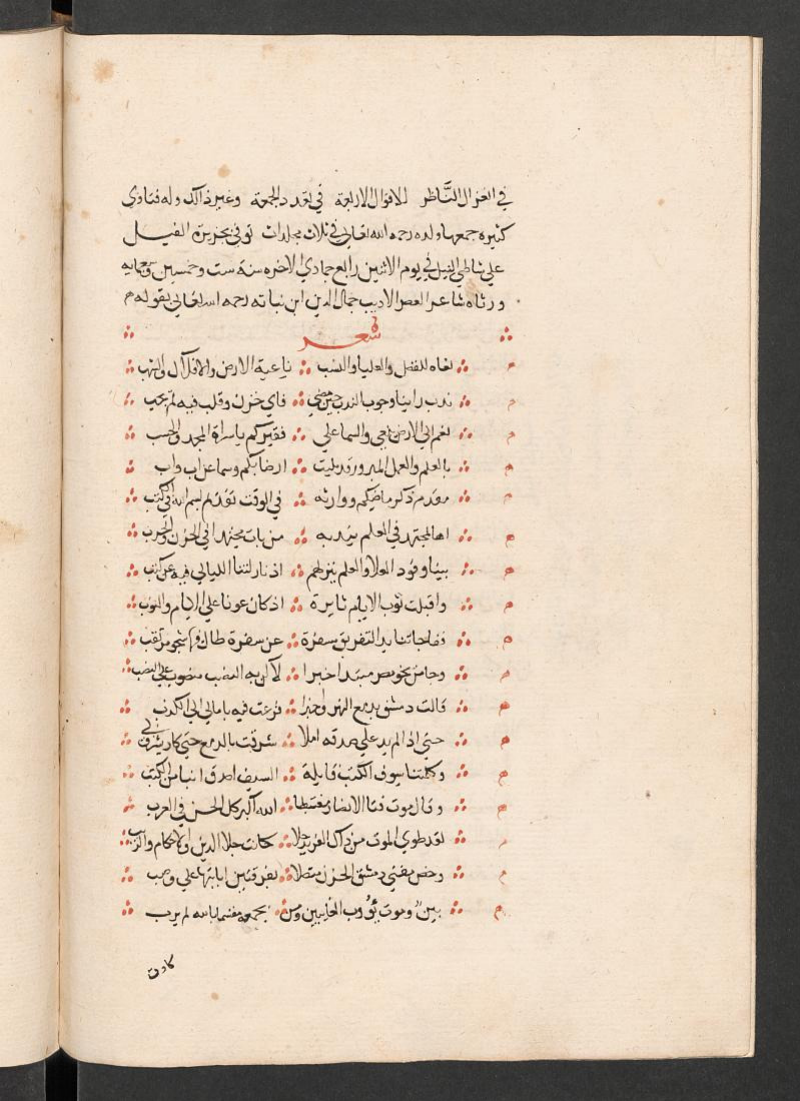 في العوال الناظر للاقوال الاربعة في تعدد الجمعة وغير ذالك وله فتاوي
كثيره جمعها ولده رحمه الله تعالى في ثلاث مجلدات توفي بجزيرة الفيل
علي شاطي النيل في يوم الاثنين رابع جمادي الاخره سنه ست وخمسين وسبعمايه
ورثاه شاعر العصر الاديب جمال الدين ابن نباته رحمه الله تعالى بقوله م
شعر
م نعاه للفضل والعليا والنسب ناعية الارض والافلاك والشهب
م ندب راينا وجوب الندب حين مضي فاي حزن وقلب فيه لم يجب
م نعم الي الارض ينعي والسما علي فقيدكم يا سراة المجد والحسب
م بالعلم والعمل المبرور قد مليت ارضا بكم وسما عن اب واب
م مقدم ذكر ماضيكم ووارثه في الوقت تقديم بسم الله في الكتب
م اها لمجتهد في العلم يندبه من بات مجتهدا في الحزن والحرب
م بينا وفود العلا والعلم ينزلهم اذ نازلتنا الليالي فيه عن كثب
م واقبلت نوب الايام ثايرة اذ كان عونا علي الايام والنوب
م وفاجاتنا يد التفريق مسفرة عن سفرة طال فيها شجو مرتقب
م وجاءنا نحو مصر مبتدا خبرا لاكن به السمع منصوب علي النصب
م قالت دمشق بدمع النهر واخبرا فزعت فيه بامالي الي الكذب
م حتي اذا لم يدع لي صدقه املا شرقت بالدمع حتي كاد يشرق بي
م وكلمتنا سيوف الكتب قايلة السيف اصدق انباء من الكتب
م وقال موت فتا الانصار مغتبطا الله اكبر كل الحسن في العرب
م لقد طوي الموت من ذاك الفريد حلا كانت حلا الدين والاحكام والرتب
م وخص مغني دمشق الحزن متصلا بفرقتين اباتتها علي وصب
م بين وموت يؤوب الغايبين ومن يجمعه مغتمدا بالله لم يوب
كادت